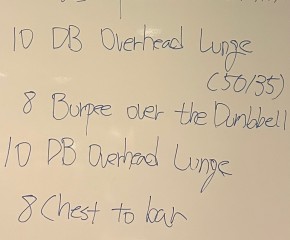 10 DB Overhead Lunge
(50/35)
8 Burpee over the Dumbbell
10 DB Overhead Lunge
8 Chest to bar